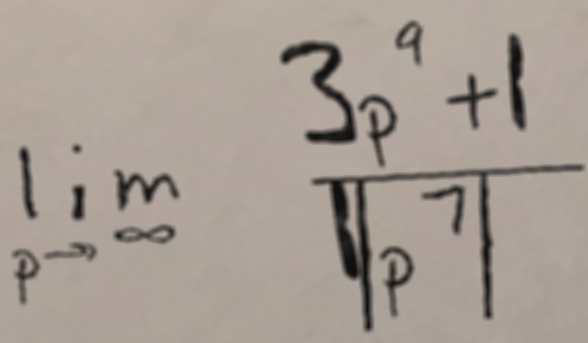 lim p→∞ (3p^9 + 1) / (1|p^7|)